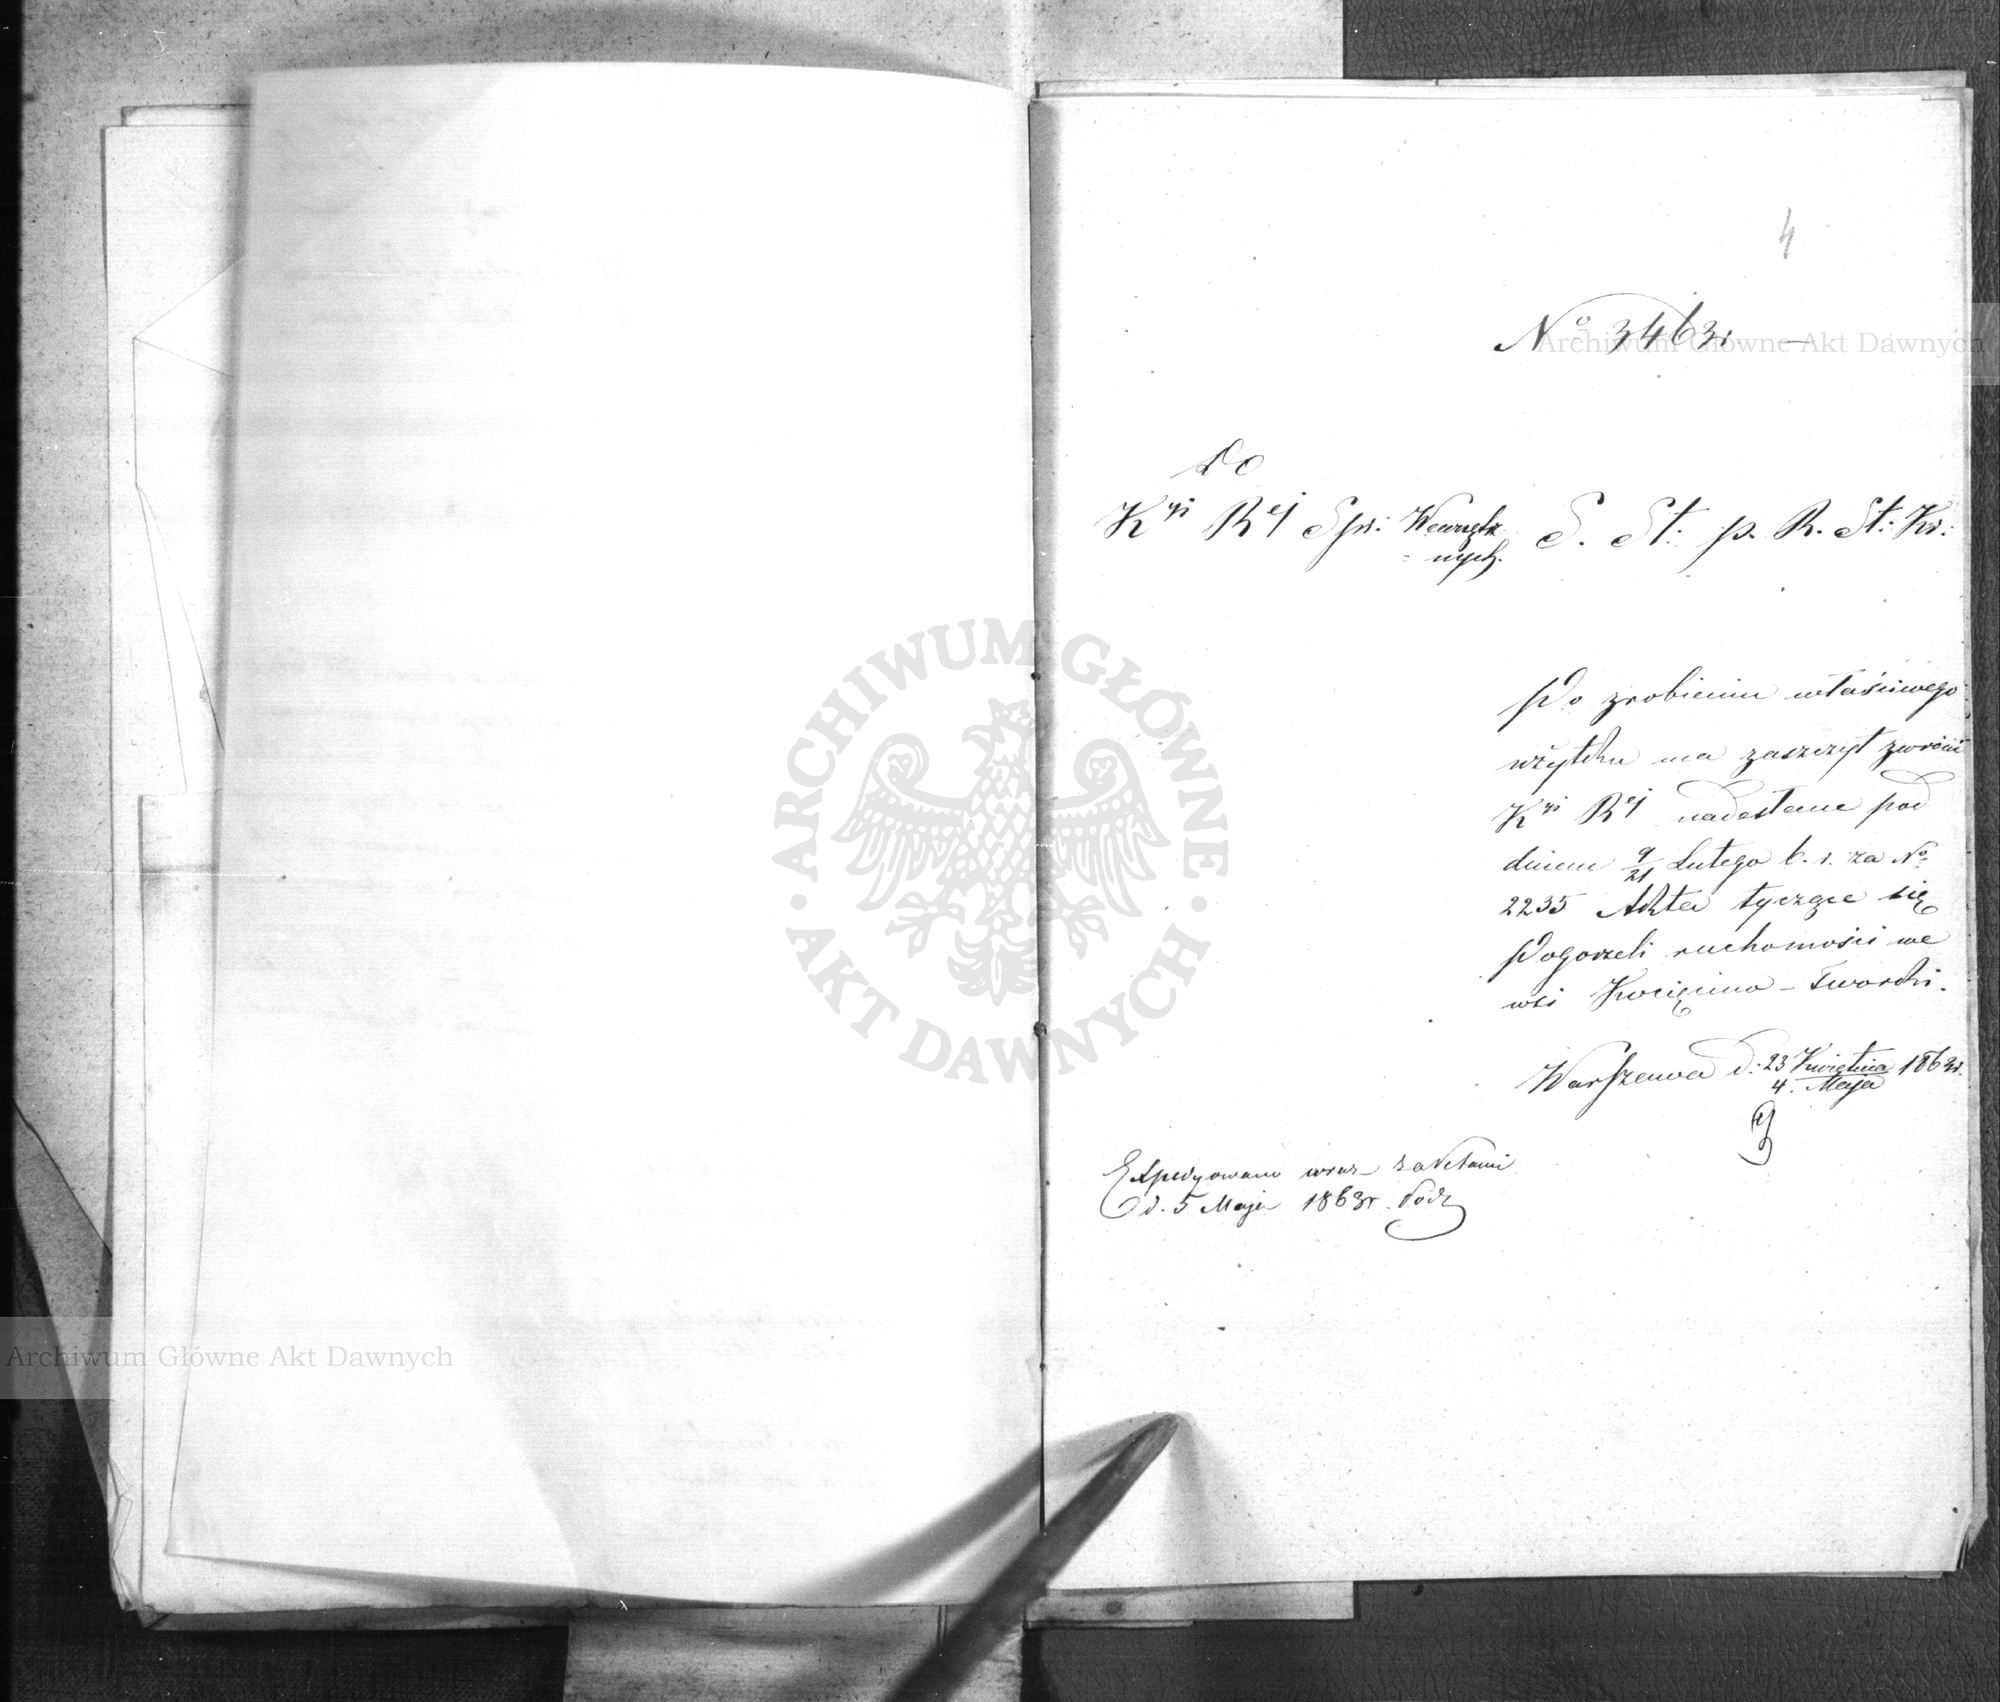 4
No 3463.
Do
Kyi Rej Spr: Wewnętrz-
nych. S. St. p. R. St: Kr:
Po zrobieniu właściwego
użytku ma zaszczyt zwrócić
Kyi Rej nadesłane pod
dniem 9/21 Lutego b. r. za No
2235 Akta tyczące się
Pogorzeli ruchomości we
wsi Kocięcina - Tworki.
Warszawa d: 23 Kwietnia / 4 Maja 1863r.
Expedyowano wraz z aktami
d. 5 Maja 1863r.
ARCHIWUM GŁÓWNE AKT DAWNYCH
Archiwum Główne Akt Dawnych
Archiwum Główne Akt Dawnych